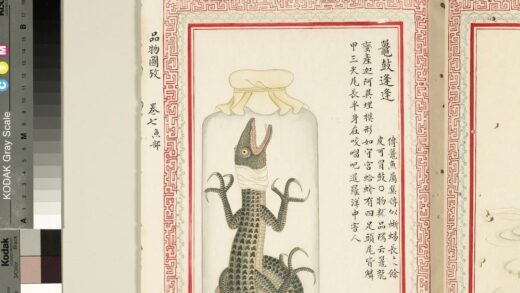 鼉鼓逢逢
傳鼉魚屬集傳似蜥蜴長丈餘
皮可冒鼓○物類品隲云鼉龍
蠻產迦阿異埋模形如守宮蛤蚧有四足頭尾皆鱗
甲三尖尾長半身在咬𠺕吧暹羅洋中害人
品物圖攷 卷七魚部
KODAK Gray Scale
C
M
Kodak